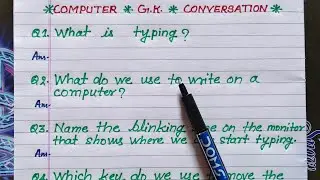 *COMPUTER * G.K. * CONVERSATION *
Q1. What is typing?
Ans-
Q2. What do we use to write on a
computer?
Ans-
Q3. Name the blinking on the monitor
that shows where we start typing.
Ans-
Which key do we use remove the